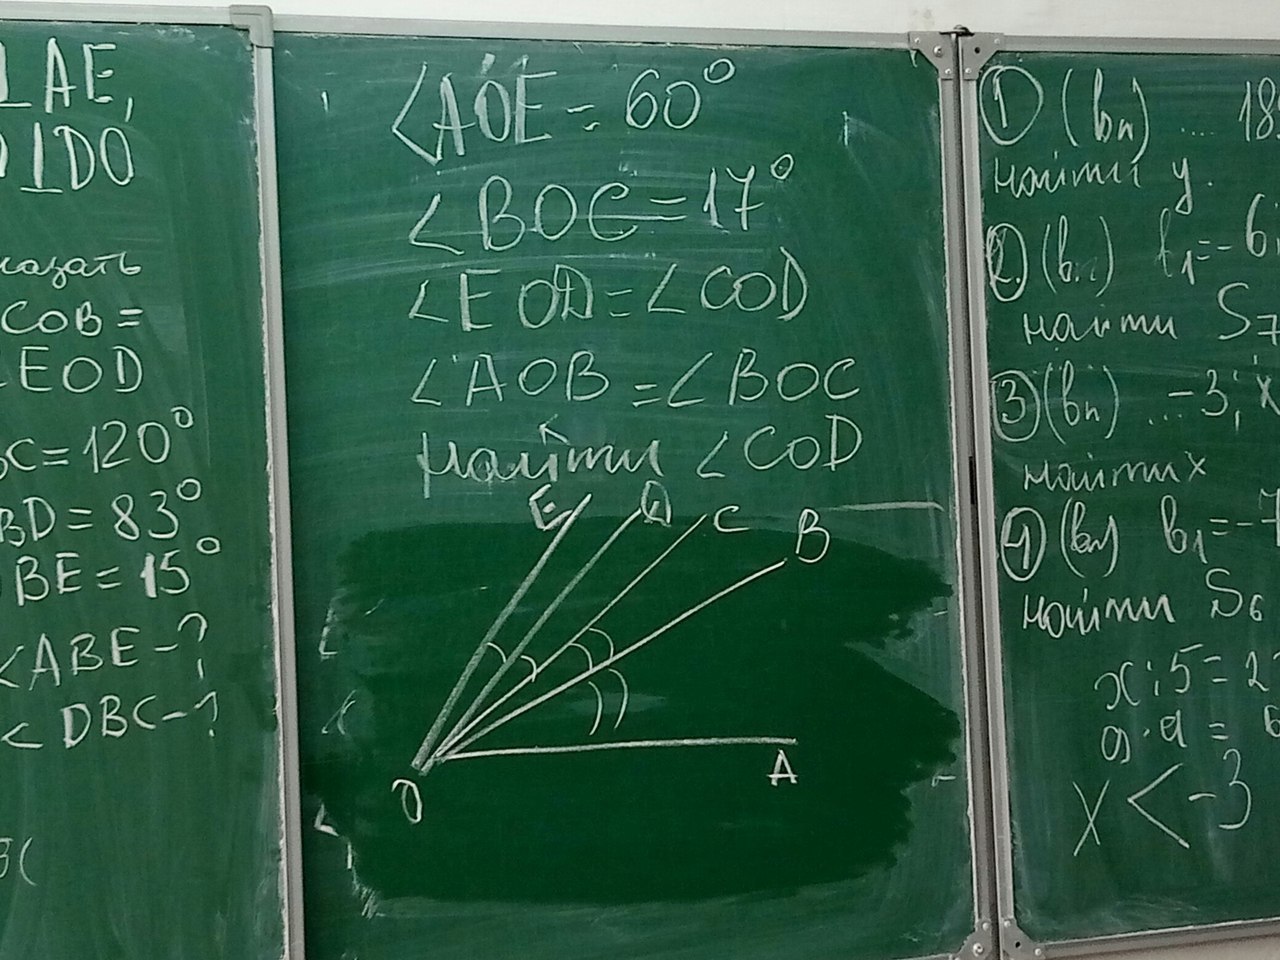 ⊥AE,
⊥DO
казать
COB =
EOD
BC = 120°
BD = 83°
BE = 15°
<ABE - ?
< DBC - ?
BC
<AOE = 60°
<BOC = 17°
<EOD = <COD
<AOB = <BOC
найти <COD
E D C B
O A
① (bn) .... 18
найти y.
② (bn) b₁ = - 6;
найти S₇
③ (bn) .. - 3; x
найти x
④ (bn) b₁ = - 7
найти S₆
x : 5 = 2
a · 4 = 6
x < -3